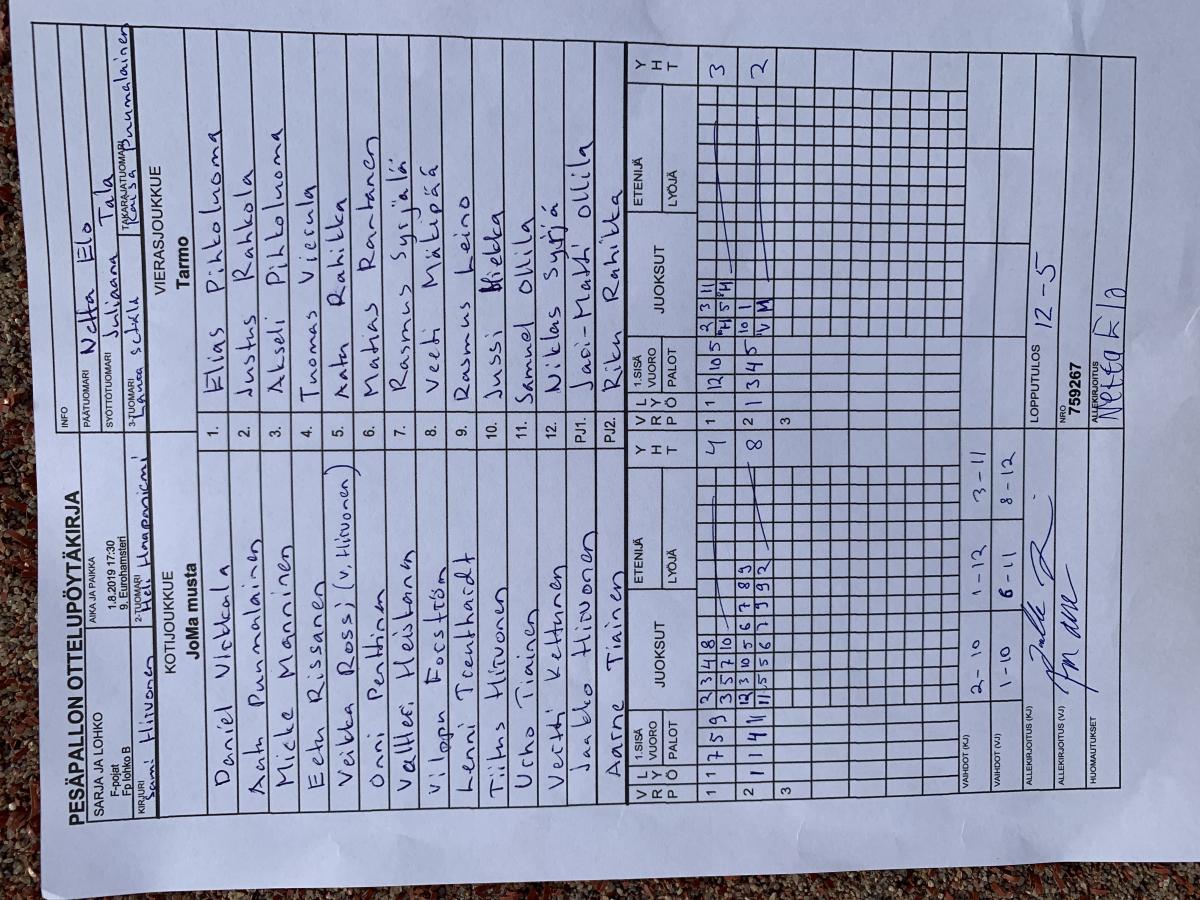 PESÄPALLON OTTELUPÖYTÄKIRJA
SARJA JA LOHKO
F-pojat
Fp lohko B
AIKA JA PAIKKA
1.8.2019 17:30
9. Eurohamsteri
INFO
PÄÄTUOMARI Netta Elo
SYÖTTÖTUOMARI Juliaana Tala
KIRJURI Sami Hirvonen
2-TUOMARI Heli Haapaniemi
3-TUOMARI Laura
TAKARAJATUOMARI Kaisa Puumalainen
KOTIJOUKKUE
JoMa musta
VIERASJOUKKUE
Tarmo
Daniel Virkkala 1. Elias Pihkoluoma
Aatu Puumalainen 2. Justus Rahkola
Micke Manninen 3. Akseli Pihkoluoma
Eetu Rissanen 4. Tuomas Vierula
Veikka Rossi (v. Hirvonen) 5. Aatu Rahikka
Onni Penttinen 6. Matias Rantanen
Valtteri Heiskanen 7. Rasmus Syrjälä
Vilppu Forsström 8. Veeti Mäkipää
Lenni Troenthardt 9. Rasmus Leino
Tiitus Hirvonen 10. Jussi Hiekka
Urho Tiainen 11. Samuel Ollila
Vertti Kettunen 12. Niklas Syrjä
Jaakko Hirvonen PJ1. Jari-Matti Ollila
Aarne Tiainen PJ2. Riku Rahikka
V R P L Y Ö 1.SISÄ VUORO PALOT JUOKSUT ETENIJÄ LYÖJÄ Y H T V R P L Y Ö 1.SISÄ VUORO PALOT JUOKSUT ETENIJÄ LYÖJÄ Y H T
1 1 7 5 9 2 3 4 8 4 1 1 12 10 5 2 3 11 3
3 5 7 10 5
2 1 1 4 11 12 3 10 5 6 7 8 9 8 2 1 3 4 5 10 1 2
11 5 5 6 7 9 9 2 V M
3 3
VAIHDOT (KJ) 2-10 1-12 3-11
VAIHDOT (VJ) 1-10 6-11 8-12
ALLEKIRJOITUS (KJ)
LOPPUTULOS 12-5
ALLEKIRJOITUS (VJ)
NRO
759267
HUOMAUTUKSET
ALLEKIRJOITUS
Netta Elo